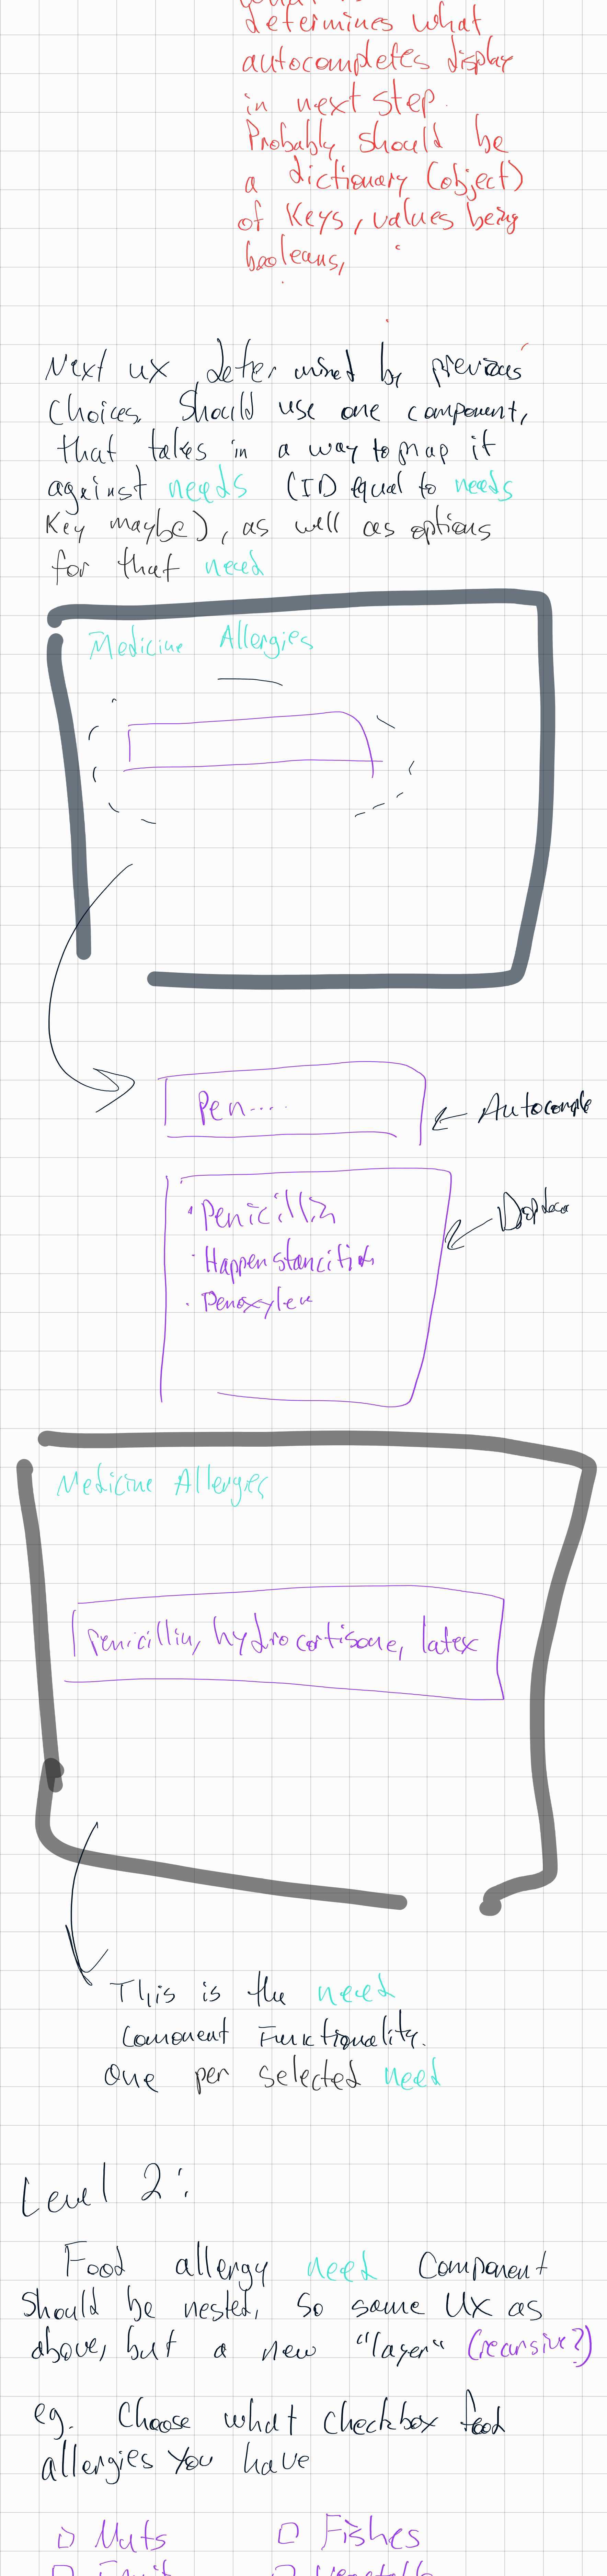 determines what
autocompletes display
in next step.
Probably should be
a dictionary (object)
of keys, values being
booleans,
Next ux determined by previous
choices. Should use one component,
that takes in a way to map it
against needs (ID equal to needs
Key maybe), as well as options
for that need
Medicine Allergies
Pen....
Autocomple
• Penicillin
• Happenstancitin
• Penoxylen
Medicine Allergies
Penicillin, hydrocortisone, latex
This is the need
Component Functionality.
One per selected need
Level 2:
Food allergy need component
should be nested, so same UX as
above, but a new "layer" (recursive?)
eg. Choose what checkbox food
allergies you have
Nuts
Fishes